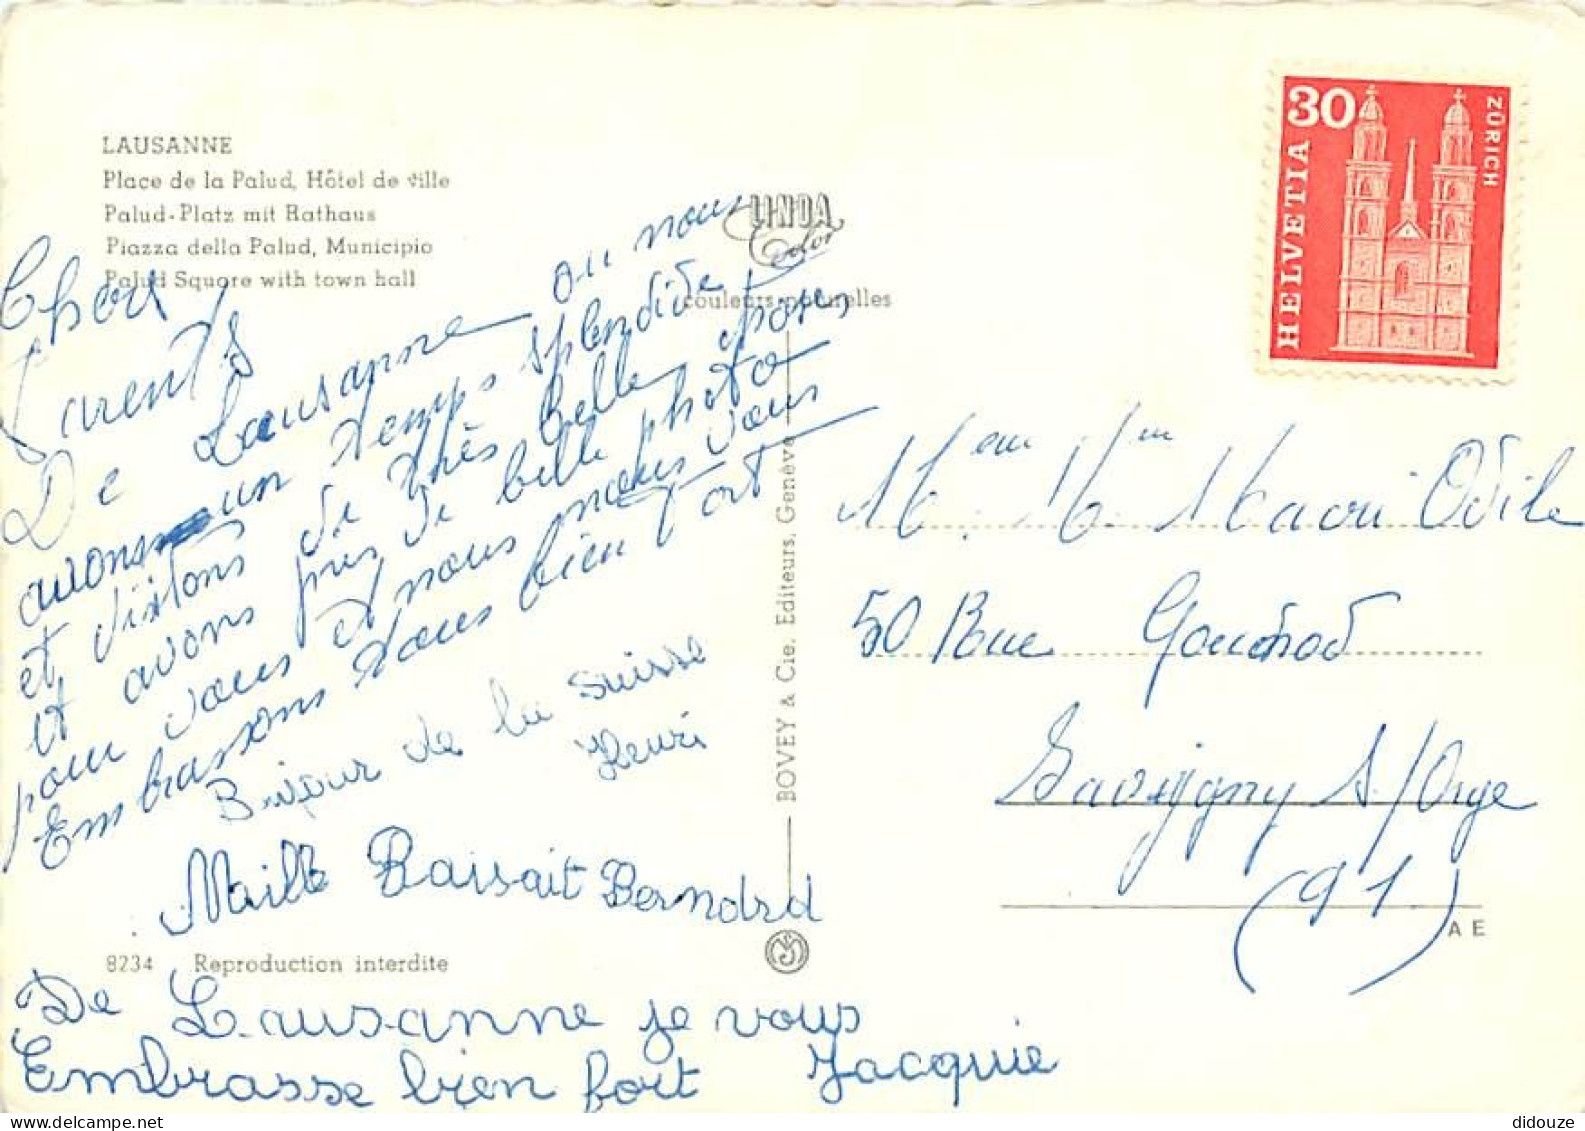 LAUSANNE
Place de la Palud, Hôtel de ville
Palud-Platz mit Rathaus
Piazza della Palud, Municipio
Palud Square with town hall
LINDA
Color
couleurs naturelles
30
ZÜRICH
HELVETIA
Parents
De Lausanne ou nous
avons un temps splendide
et visitons de très belle choses
et avons pris de belle photo
pour vous et nous nous vous
Embrassons tous bien fort
de la suisse
Henri
Maille Baisait Bernard
8234 Reproduction interdite
De Lausanne je vous
Embrasse bien fort Jacquie
BOVEY & Cie. Editeurs, Genève
M. em Mm Odile
50 Rue
Savigny s/Orge
(91)
A E
didouze